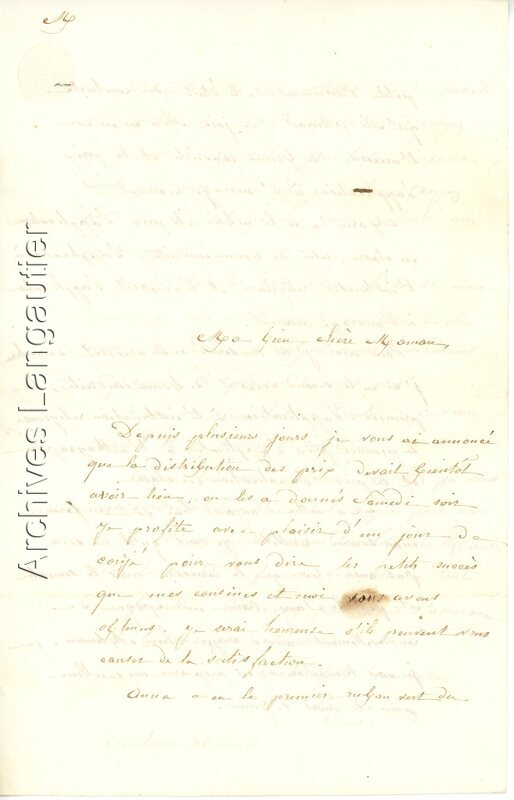 Archives Langautier
Ma bien chère Maman,
Depuis plusieurs jours je vous ai annoncé
que la distribution des prix devait bientôt
avoir lieu, on les a donnés Samedi soir
Je profite avec plaisir d'un jour de
congé pour vous dire les petits succès
que mes cousines et moi vous avons
obtenus. je serai heureuse s'ils peuvent vous
causer de la satisfaction.
Anna a eu le premier ruban vert du